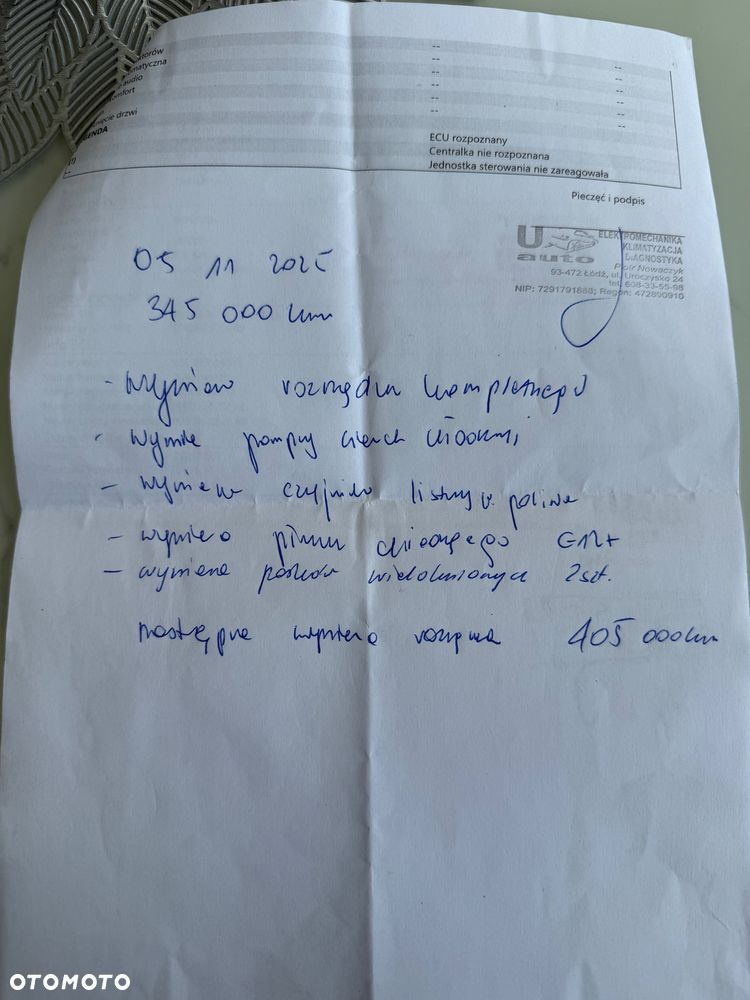 ktorów --
matyczna -- --
audio -- --
omfort -- --
-- --
ęcie drzwi -- --
GENDA
ECU rozpoznany
Centralka nie rozpoznana
-- Jednostka sterowania nie zareagowała
Pieczęć i podpis
U auto
ELEKTROMECHANIKA
KLIMATYZACJA
DIAGNOSTYKA
Piotr Nowaczyk
93-472 Łódź, ul. Uroczysko 24
tel. 608-33-55-98
NIP: 7291791888; Regon: 472890910
05 11 2025
345 000 km
- wymiana rozrządu kompletnego
- wymiana pompy cieczy
- wymiana czujnika listwy paliwa
- wymiana płynu chłodzącego G12+
- wymiana pasków wieloklinowych 2szt.
następna wymiana rozrządu 405 000 km
OTOMOTO